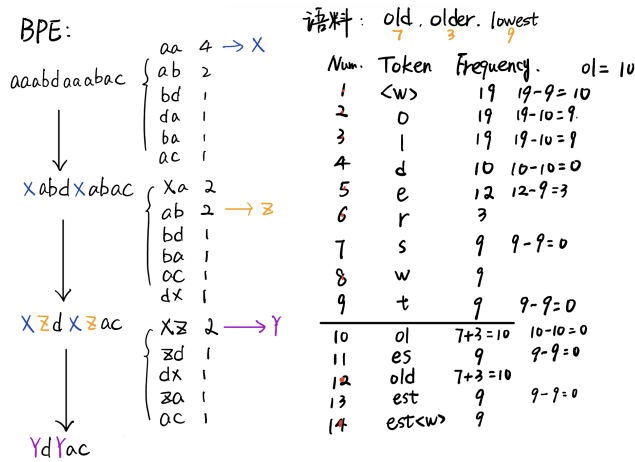 BPE:
aaabdaaabac
aa 4 → X
ab 2
bd 1
da 1
ba 1
ac 1
XabdXabac
Xa 2
ab 2 → Z
bd 1
ba 1
ac 1
dX 1
XZdXZac
XZ 2 → Y
Zd 1
dX 1
Za 1
ac 1
YdYac
语料: old, older, lowest
7 3 9
Num. Token Frequency. ol=10
1 <w> 19 19-9=10
2 o 19 19-10=9
3 l 19 19-10=9
4 d 10 10-10=0
5 e 12 12-9=3
6 r 3
7 s 9 9-9=0
8 w 9
9 t 9 9-9=0
10 ol 7+3=10 10-10=0
11 es 9 9-9=0
12 old 7+3=10
13 est 9 9-9=0
14 est<w> 9